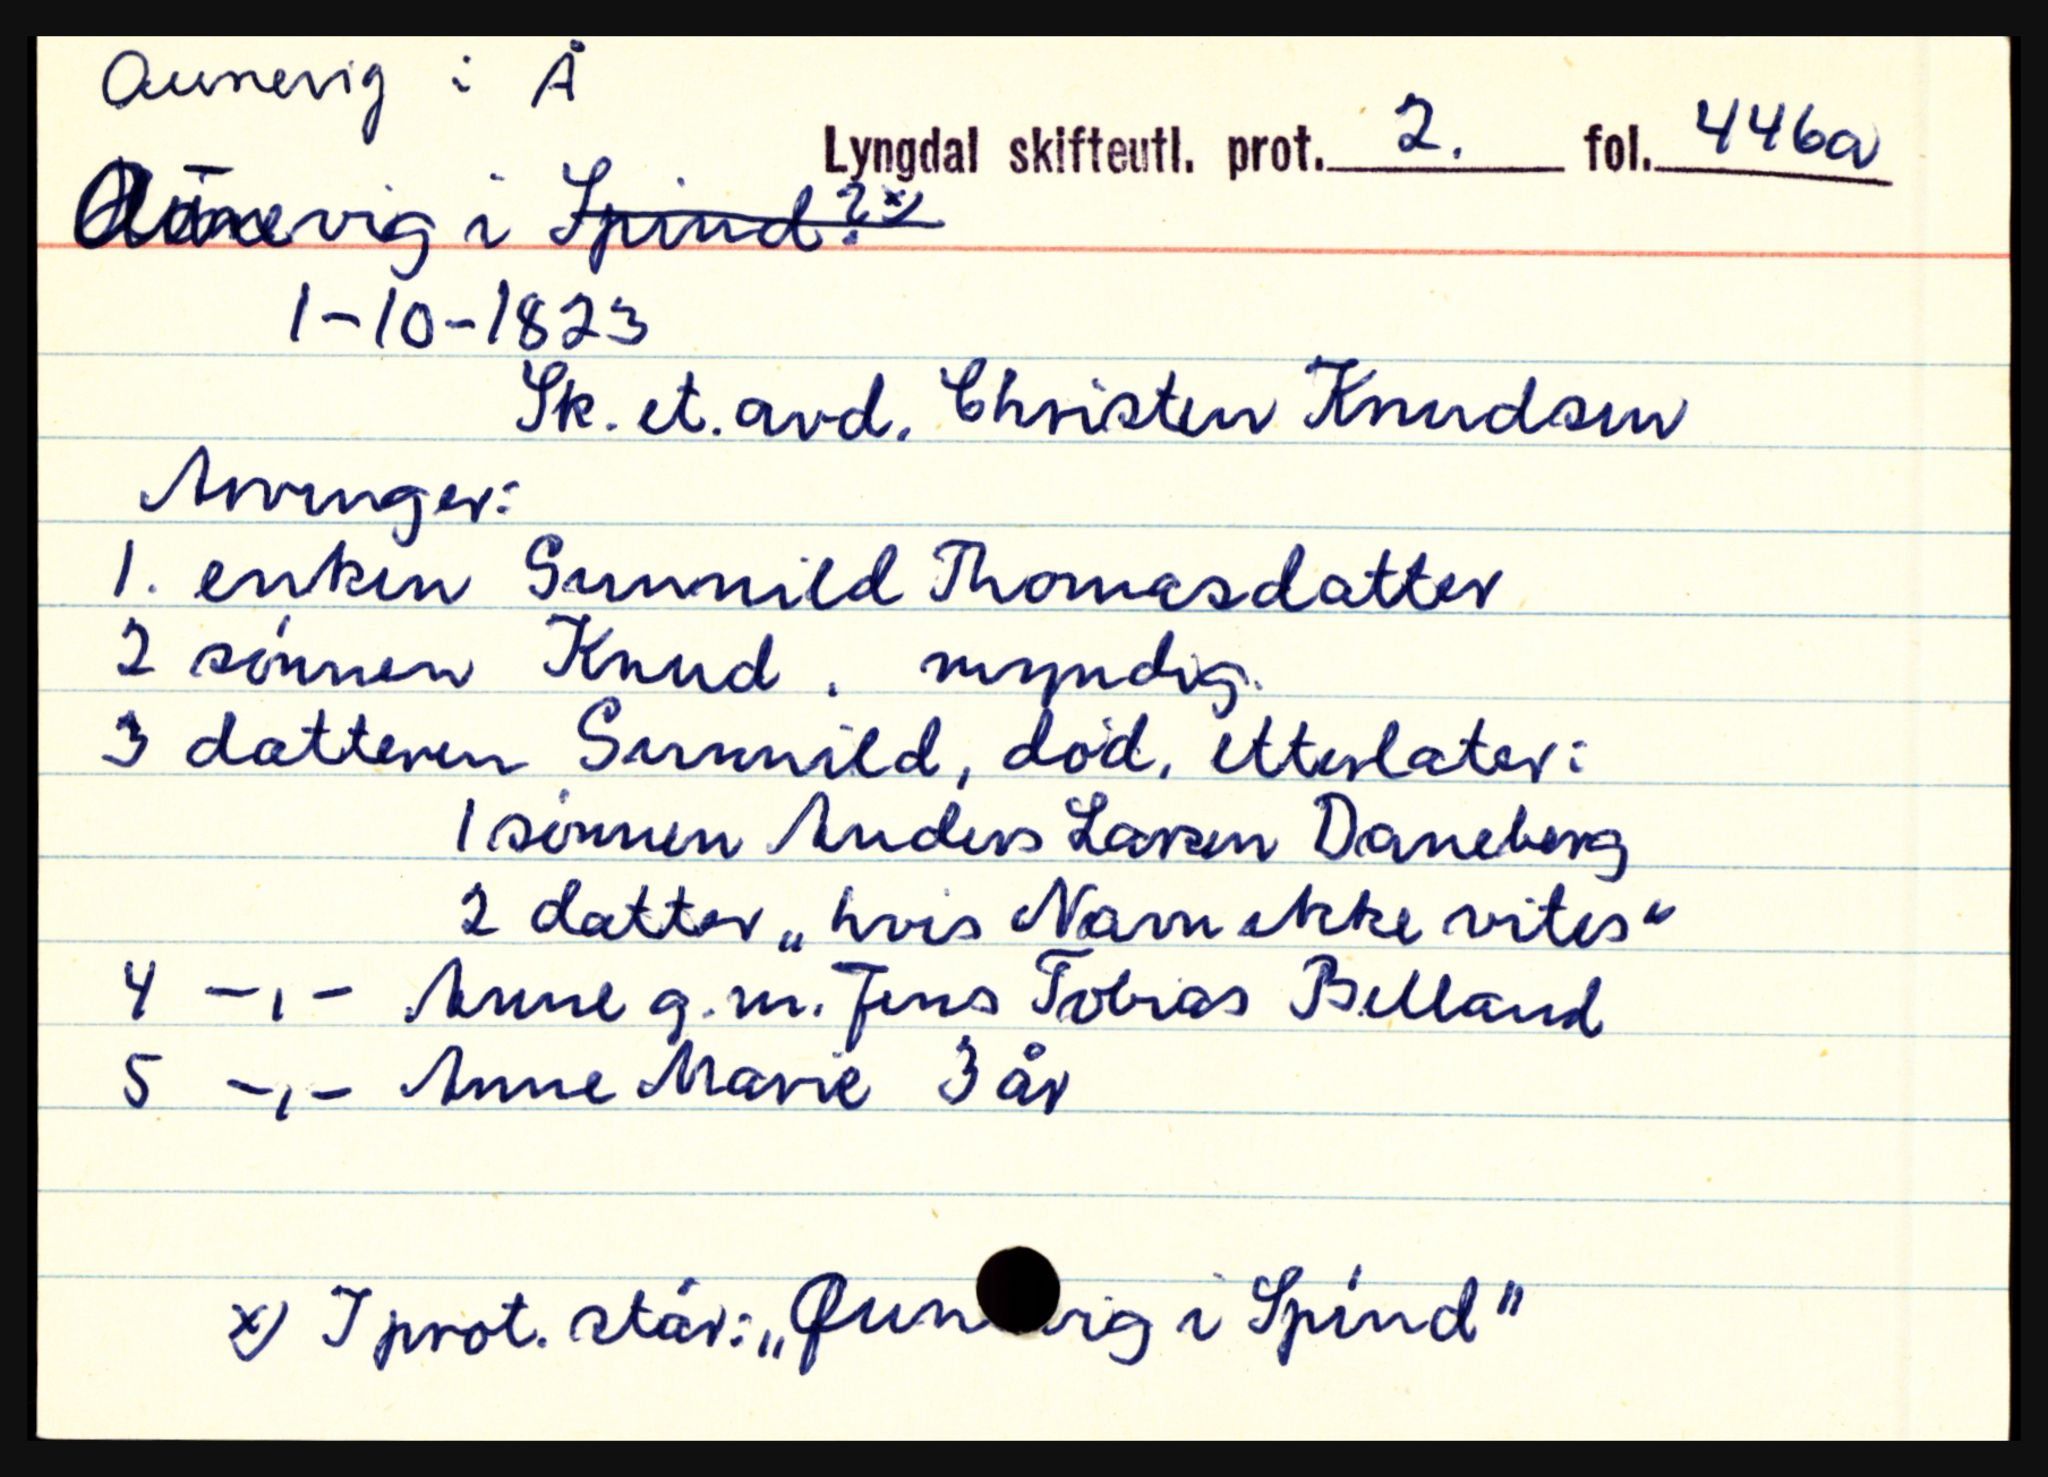 Aunevig i Å
Lyngdal skifteutl. prot. 2. fol. 446a
Aunevig i Spind? x)
1-10-1823
Sk. et. avd. Christen Knudsen
Arvinger:
1. enken Gunnild Thomasdatter
2 sønnen Knud. myndig.
3 datteren Gunnild, død, etterlater:
1 sønnen Anders Larsen Daneberg
2 datter „hvis Navn ikke vites“
4 -,- Anne g.m. Jens Tobias Belland
5 -,- Anne Marie 3 år
x) I prot. står: „Øun vig i Spind"